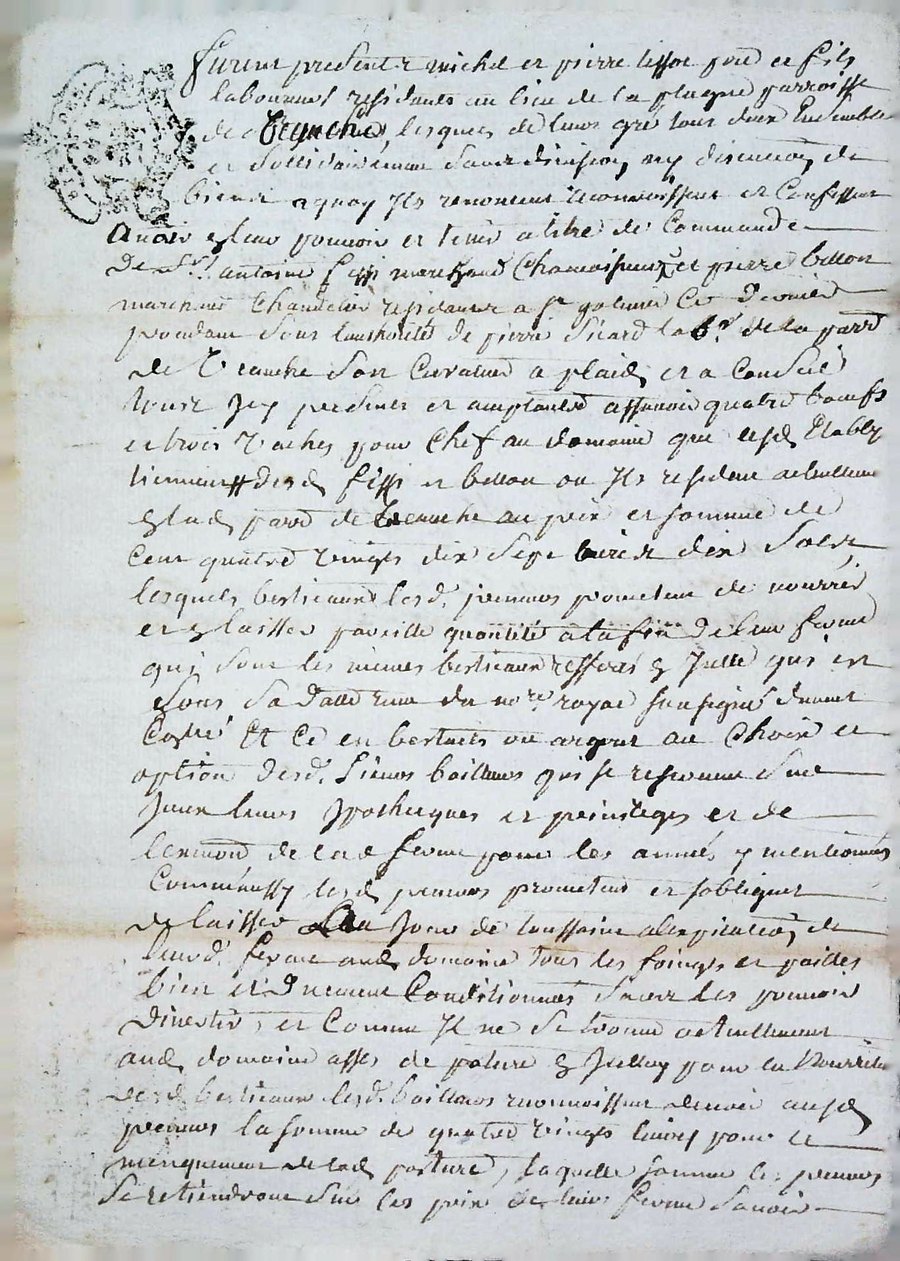 furent presents michel et pierre tissot pere et fils
laboureurs residents au lieu de la plagne parroisse
de tranche, lesquels de leurs gré tous deux Ensemble
et sollidairement sans division, ny discution, de
biens a quoy Ils renoncent reconnoissent et Confessent
avoir en leur pouvoir et tenir a titre de Commande
de Sr. antoine fissi marchand Chamoiseur et pierre bellon
marchand Chandelier residants a st galmier Ce dernier
procedant sous l'authorité de pierre sicard lab.r de la parr
de tranche son Curateur a plaid, et a Conseil
tous Icy presents et acceptants assavoir quatre boeufs
et trois vaches pour Chef au domaine que lesd Etably
tiennent desd fissi et bellon ou Ils resident actuellement
en lad parr de tranche au prix et somme de
Cent quatre vingts dix sept livres dix sols,
lesquels bestieaux lesd. preneurs promettent de nourrir
et en laisser pareille quantité a la fin de leur ferme
qui sont les memes bestieaux en Icelle qui est
sous sa datte reçue du no.re royal soussigné dument
Collé Et Ce en bestiaux ou argent au Choix et
option desd. sieurs bailleurs qui se reservent sur
Iceux leurs Ipotheques et privileges et de
de lad ferme pour les années y mentionnés
Comme aussy lesd preneurs promettent et sobligent
de laisser au Jour de toussaint a lexpiration, de
leurd. ferme aud domaine tous les foings et pailles
bien et dument Conditionnés sans les pouvoir
divertir, et Comme Il ne se trouve actuellement
aud, domaine asses de pature en Iceluy pour la Nourriture
desd bestieaux lesd. bailleurs reconnoissent devoir auxd
preneurs la somme de quatre vingts livres pour le
menquement de lad pasture, laquelle somme les preneurs
se retiendront sur les prix de leurs ferme savoir